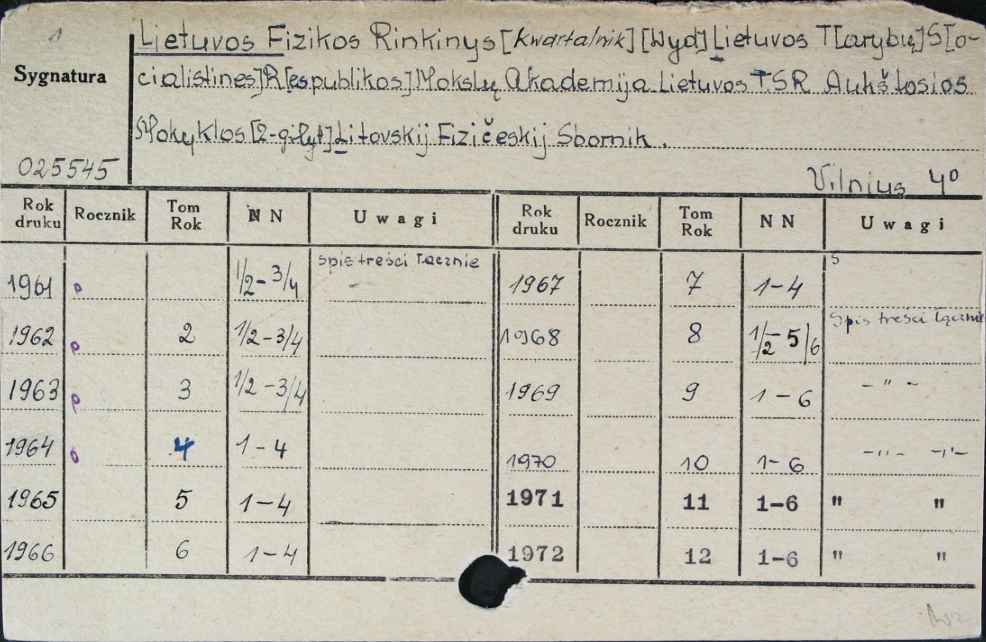 1
Lietuvos Fizikos Rinkinys [kwartalnik] [Wyd] Lietuvos T[arybų] S[o-
Sygnatura
cialistines] R[espublikos] Mokslų Akademija Lietuvos TSR Aukštosios
Mokyklos [2-gi tyt] Litovskij Fizičeskij Sbornik.
025545
Vilnius 4°
Rok druku Rocznik Tom Rok N N Uwagi Rok druku Rocznik Tom Rok N N Uwagi
1961 p 1/2-3/4 spis treści łącznie 1967 7 1-4 s
1962 p 2 1/2-3/4 1968 8 1/2-5/6 Spis treści łącznie
1963 p 3 1/2-3/4 1969 9 1-6 -"-
1964 p 4 1-4 1970 10 1-6 -"- -"-
1965 5 1-4 1971 11 1-6 " "
1966 6 1-4 1972 12 1-6 " "